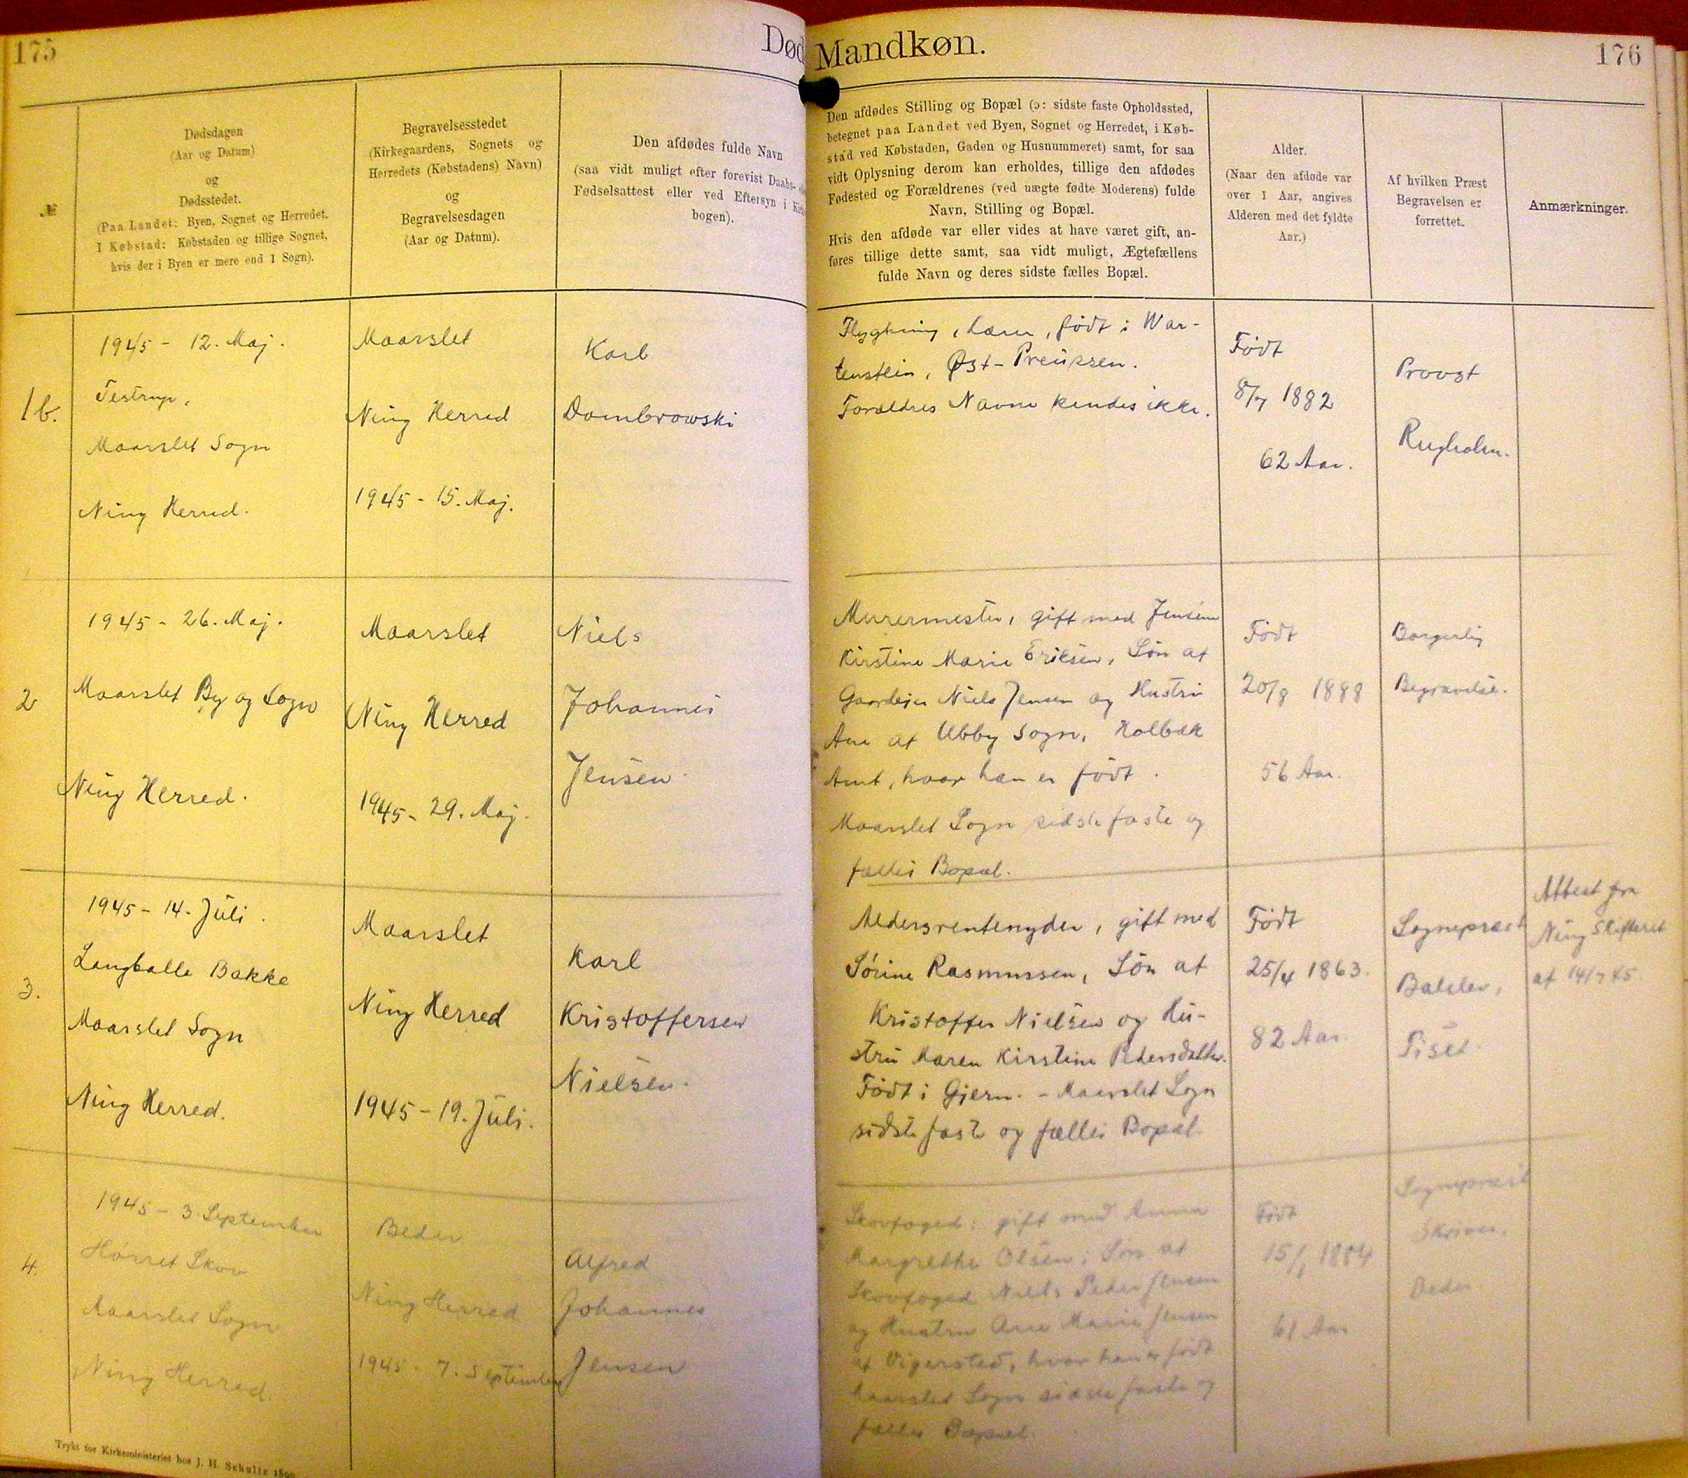 175
Død
№
Dødsdagen
(Aar og Datum)
og
Dødsstedet.
(Paa Landet: Byen, Sognet og Herredet.
I Købstad: Købstaden og tillige Sognet,
hvis der i Byen er mere end 1 Sogn).
Begravelsesstedet
(Kirkegaardens, Sognets og
Herredets (Købstadens) Navn)
og
Begravelsesdagen
(Aar og Datum).
Den afdødes fulde Navn
(saa vidt muligt efter forevist Daabs-
Fødselsattest eller ved Eftersyn i
bogen).
1b.
1945 - 12. Maj.
Testrup,
Maarslet Sogn
Ning Herred.
Maarslet
Ning Herred
1945 - 15. Maj.
Karl
Dombrowski
2
1945 - 26. Maj.
Maarslet By og Sogn
Ning Herred.
Maarslet
Ning Herred
1945 - 29. Maj.
Niels
Johannes
Jensen.
3.
1945 - 14. Juli.
Langballe Bakke
Maarslet Sogn
Ning Herred.
Maarslet
Ning Herred
1945 - 19. Juli.
Karl
Kristoffersen
Nielsen.
4.
1945 - 3 September
Hørret Skov
Maarslet Sogn
Ning Herred.
Beder
Ning Herred
1945 - 7. September
Alfred
Johannes
Jensen
Trykt for Kirkeministeriet hos J. H. Schultz
Mandkøn.
176
Den afdødes Stilling og Bopæl (ɔ: sidste faste Opholdssted,
betegnet paa Landet ved Byen, Sognet og Herredet, i Køb-
stad ved Købstaden, Gaden og Husnummeret) samt, for saa
vidt Oplysning derom kan erholdes, tillige den afdødes
Fødested og Forældrenes (ved uægte fødte Moderens) fulde
Navn, Stilling og Bopæl.
Hvis den afdøde var eller vides at have været gift, an-
føres tillige dette samt, saa vidt muligt, Ægtefællens
fulde Navn og deres sidste fælles Bopæl.
Alder.
(Naar den afdøde var
over 1 Aar, angives
Alderen med det fyldte
Aar.)
Af hvilken Præst
Begravelsen er
forrettet.
Anmærkninger.
Flygtning, født i War-
tenstein, Øst-Preussen.
Forældres Navne kendes ikke.
Født
8/7 1882
62 Aar.
Provst
Rugholm.
Murermester, gift med Jensine
Kirstine Marie Eriksen, Søn af
Gaardejer Niels Jensen og Hustru
Ane af Ubby Sogn, Holbæk
Amt, hvor han er født.
Maarslet Sogn sidste faste og
fælles Bopæl.
Født
20/8 1888
56 Aar.
Borgerlig
Begravelse.
Aldersrentenyder, gift med
Sørine Rasmussen, Søn af
Kristoffer Nielsen og Hu-
stru Maren Kirstine Pedersdatter.
Født i Gjern. - Maarslet Sogn
sidste faste og fælles Bopæl.
Født
25/4 1863.
82 Aar.
Sognepræst
Balslev,
Tiset.
Attest fra
Ning Skifteret
af 14/7 45.
Skovfoged; gift med Anna
Margrethe Olsen; Søn af
Skovfoged Niels Peder Jensen
og Hustru Ane Marie Jensen
af Vigersted, hvor han er født
Maarslet Sogn sidste faste og
fælles Bopæl.
Født
1884
61 Aar
Sognepræst
Skriver,
Beder